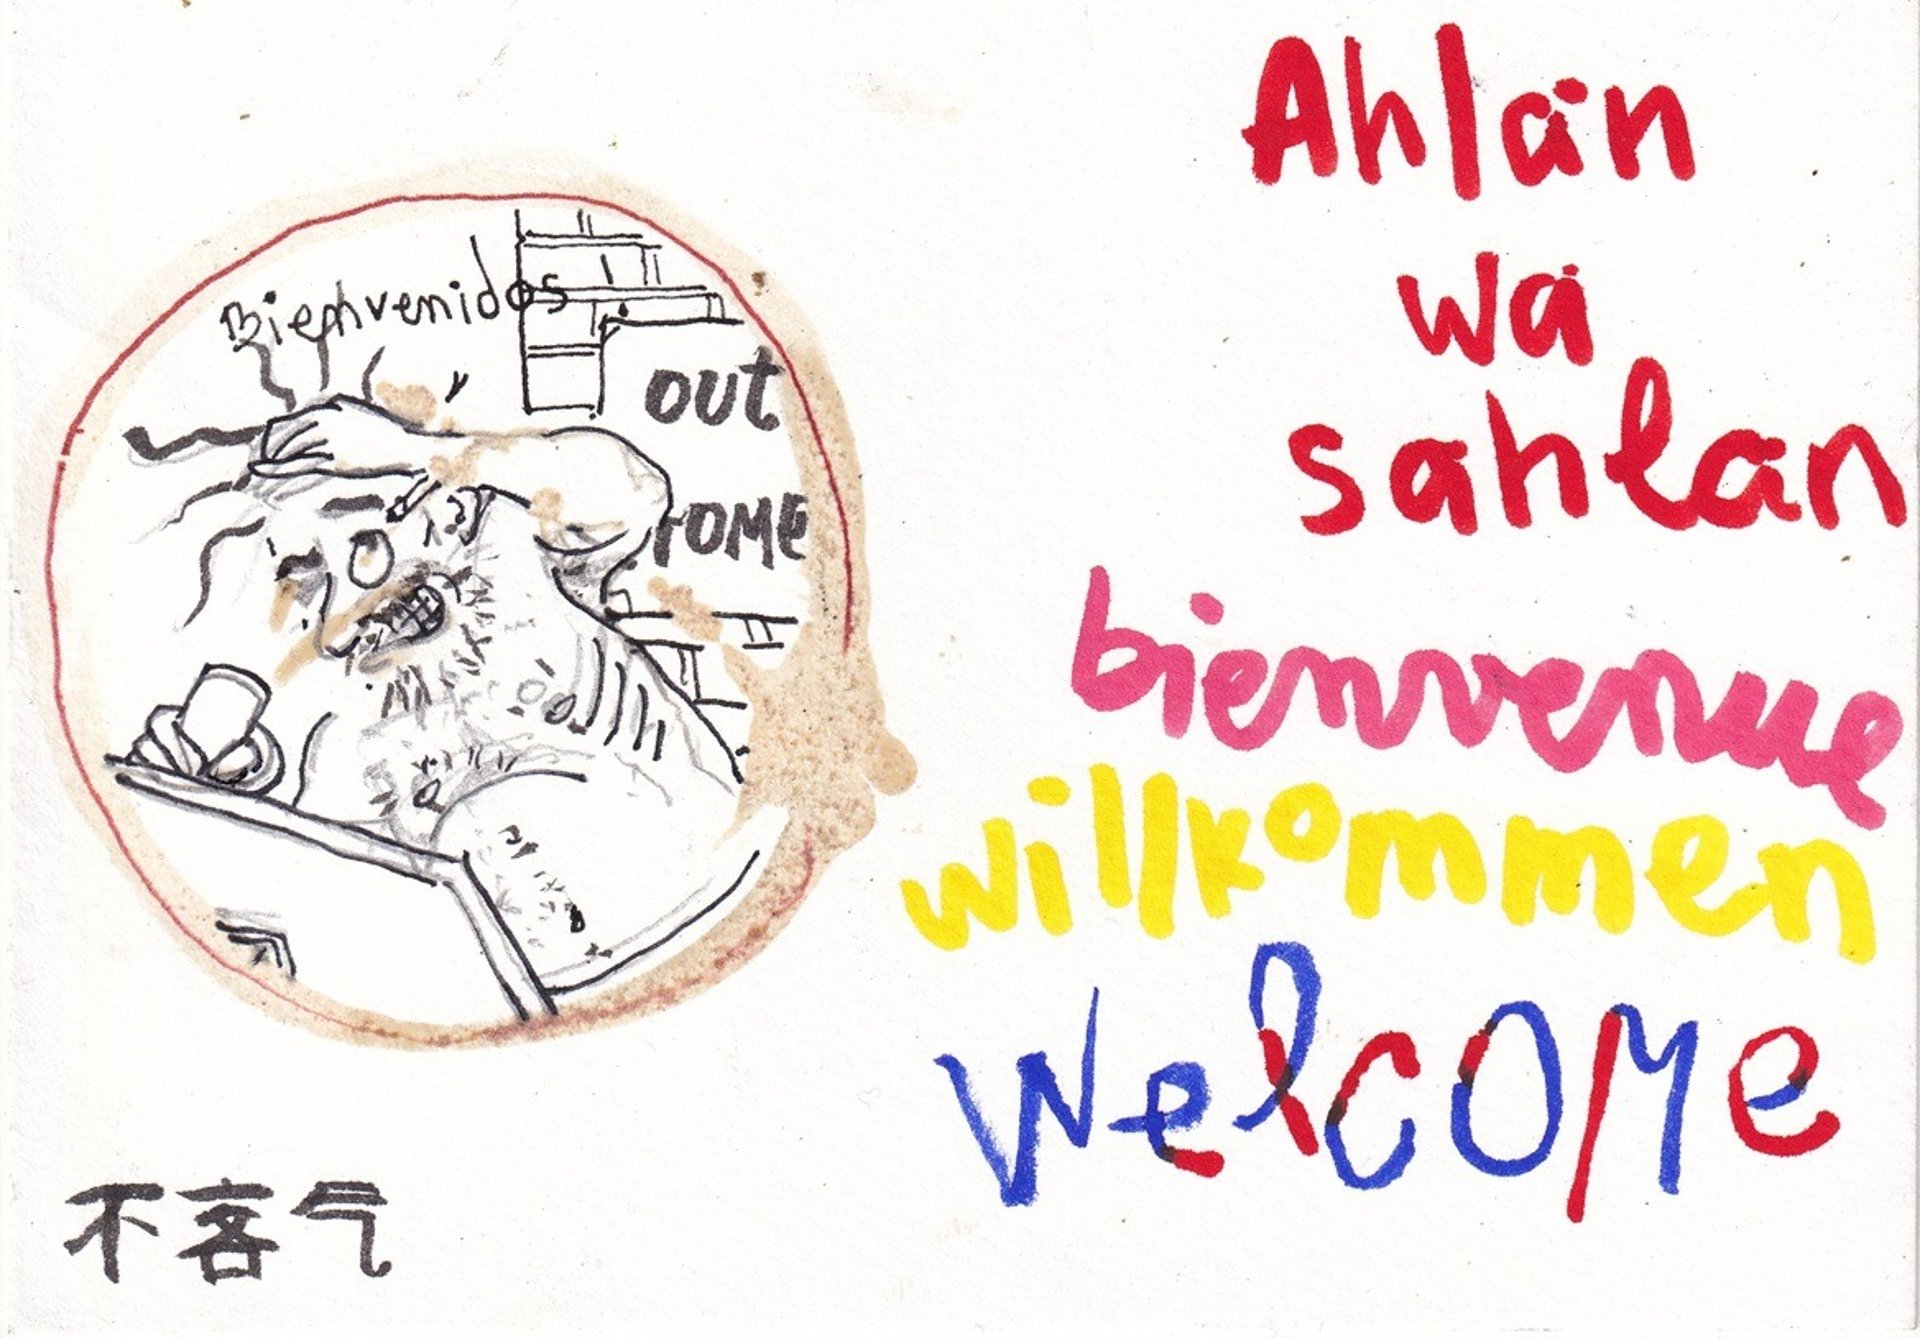 Bienvenidos
OUT
Ahlan
wa
sahlan
bienvenue
willkommen
WelcOMe
不客气